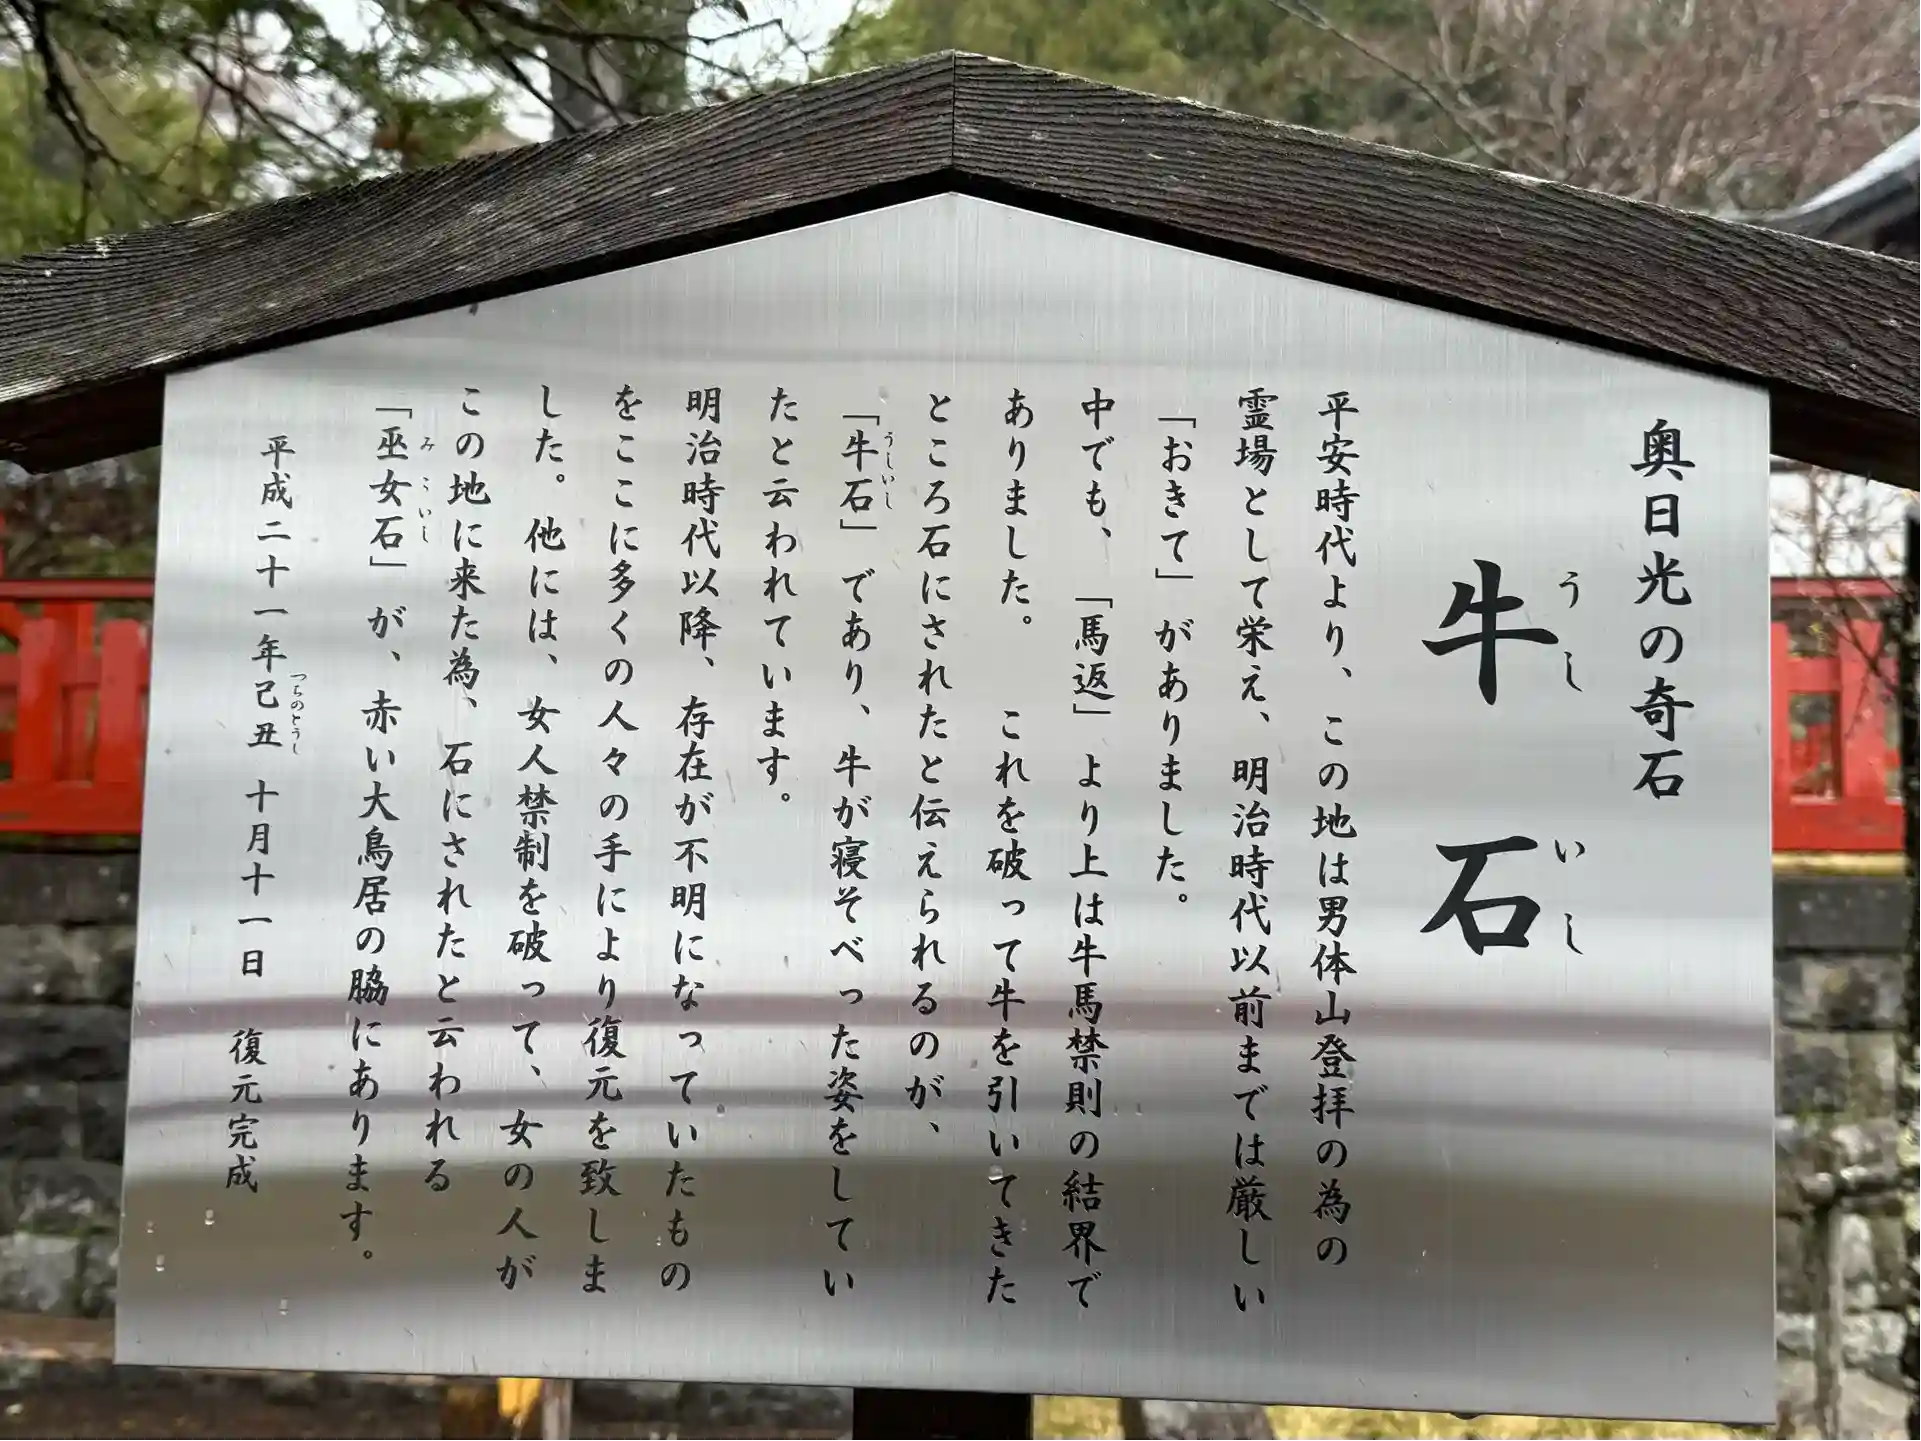 奥日光の奇石
牛石
うしいし
平安時代より、この地は男体山登拝の為の
霊場として栄え、明治時代以前までは厳しい
「おきて」がありました。
中でも、「馬返」より上は牛馬禁則の結界で
ありました。　これを破って牛を引いてきた
ところ石にされたと伝えられるのが、
「牛石」であり、牛が寝そべった姿をしてい
うしいし
たと云われています。
明治時代以降、存在が不明になっていたもの
をここに多くの人々の手により復元を致しま
した。他には、女人禁制を破って、女の人が
この地に来た為、石にされたと云われる
「巫女石」が、赤い大鳥居の脇にあります。
みこいし
平成二十一年己丑　十月十一日　復元完成
つちのとうし